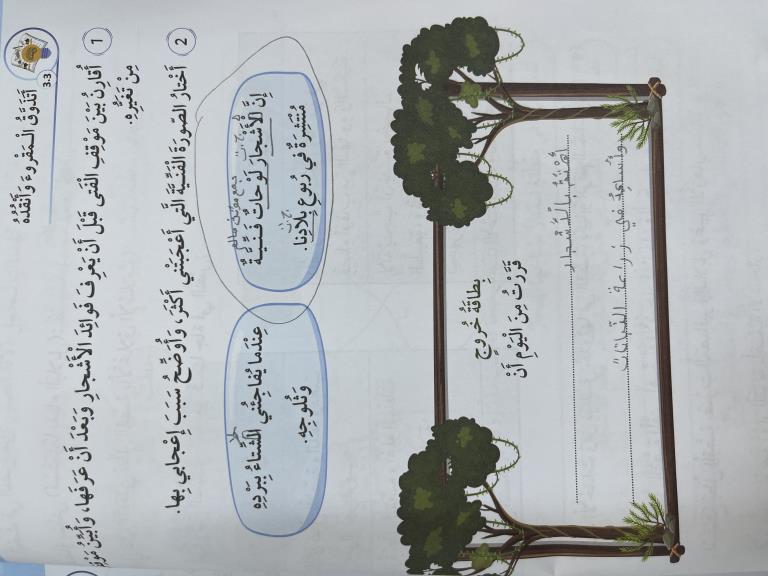 3.3
أَتَذَوَّقُ الْمَقْروءَ وَأَنْقُدُهُ
1 أُقارِنُ بَيْنَ مَوْقِفِ الْفَتى قَبْلَ أَنْ يَعْرِفَ فَوائِدَ الْأَشْجارِ وَبَعْدَ أَنْ عَرَفَها، وَأُبَيِّنُ
مِنْ تَغَيُّرِهِ.
2 أَخْتارُ الصّورَةَ الْفَنِّيَّةَ الَّتي أَعْجَبَتْني أَكْثَرَ، وَأُوَضِّحُ سَبَبَ إِعْجابي بِها.
إِنَّ الْأَشْجارَ لَوْحاتٌ فَنِّيَّةٌ
مُنْتَشِرَةٌ في رُبوعِ بِلادِنا.
جمع مؤنث سالم
عِنْدَما يُفاجِئُني الشِّتاءُ بِبَرْدِهِ
وَثُلوجِهِ.
بِطاقَةُ خُروجٍ
قَرَّرْتُ مِنَ الْيَوْمِ أَنْ
أهتم بالأشجار
في زراعة النباتات